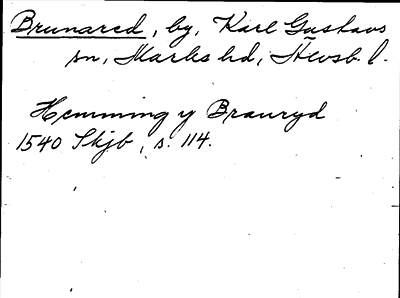 Brunared, by, Karl Gustavs
sn, Marks hd, Älvsb. l.
Hemming y Branryd
1540 Skjb, s. 114.